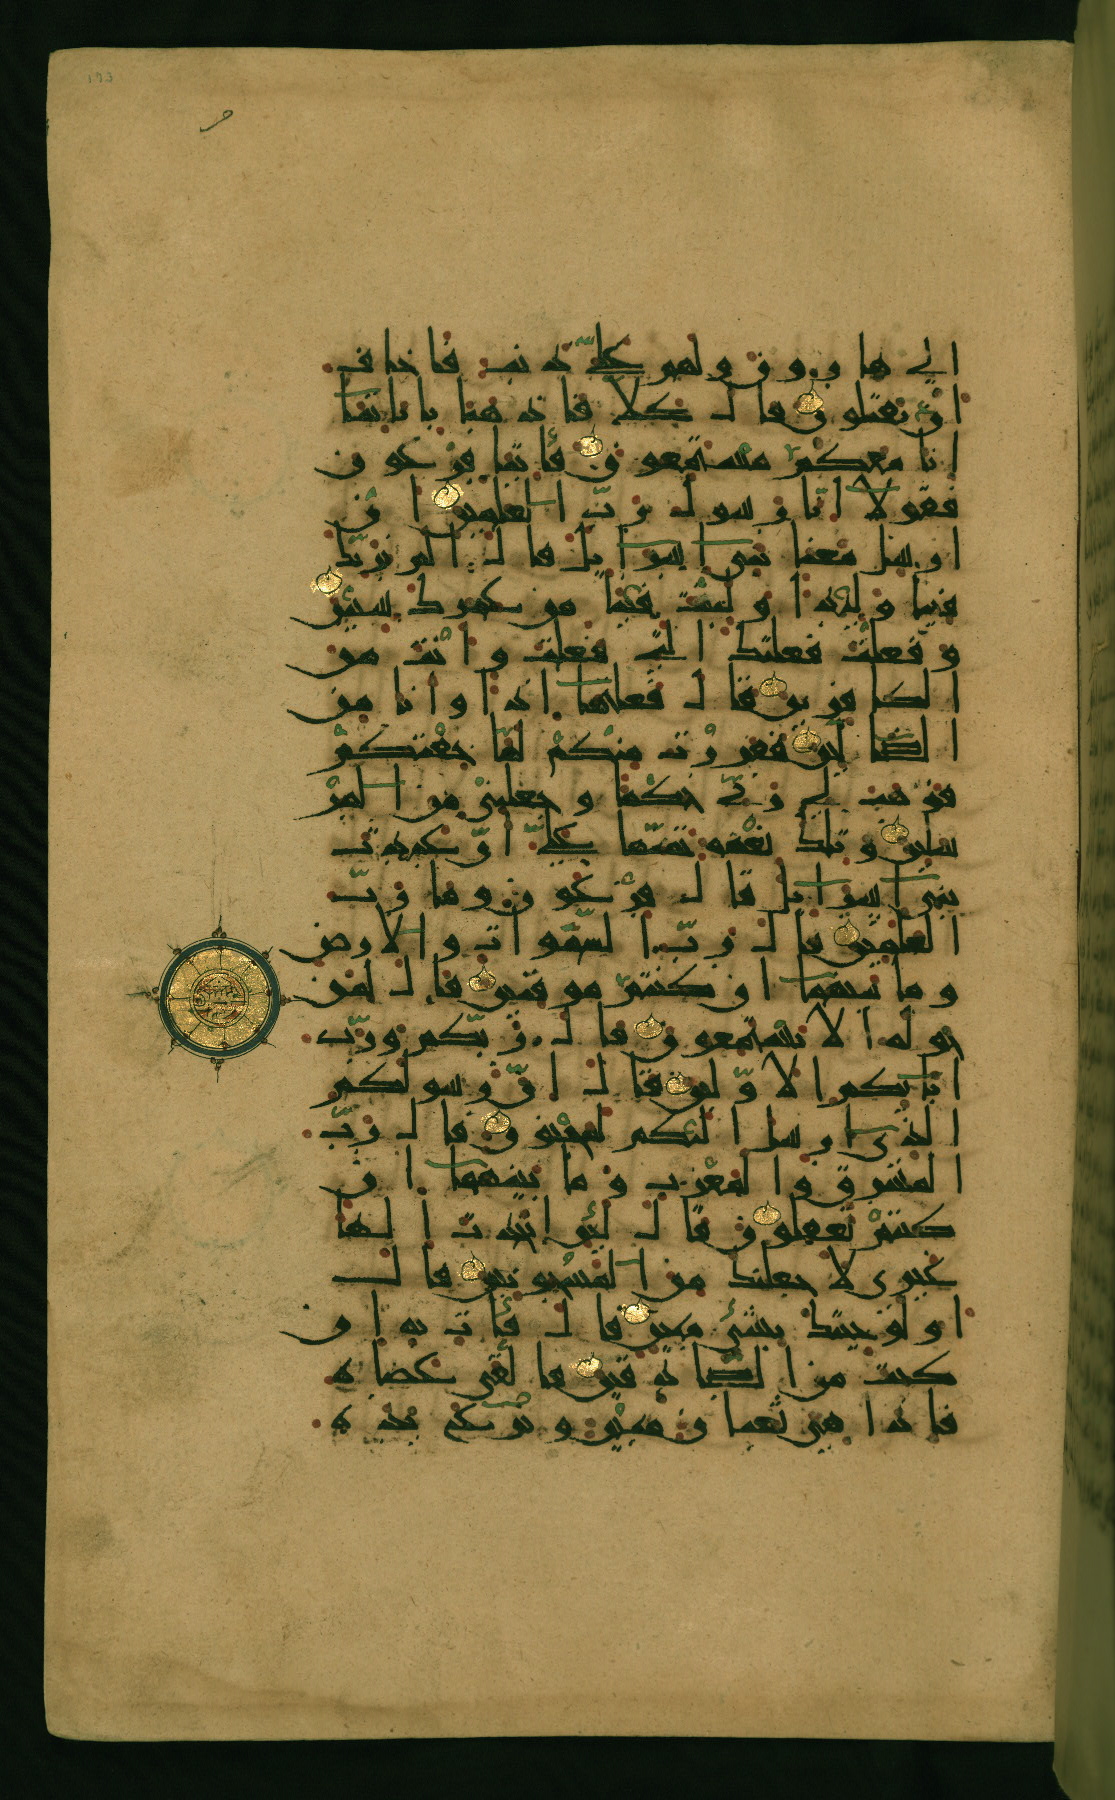 193
الي هارون ولهم علي ذنب فاخاف
ان يقتلون قال كلا فاذهبا باياتنا
انا معكم مستمعون فأتيا فرعون
فقولا انا رسول رب العلمين ان
ارسل معنا بني اسرايل قال الم نربك
فينا وليدا ولبثت فينا من عمرك سنين
وفعلت فعلتك التي فعلت وانت من
الكافرين قال فعلتها اذا وانا من
الضالين ففررت منكم لما خفتكم
فوهب لي ربي حكما وجعلني من المر
سلين وتلك نعمة تمنها علي ان عبدت
بني اسرايل قال فرعون وما رب
العلمين قال رب السموات والارض
وما بينهما ان كنتم موقنين قال لمن
حوله الا تستمعون قال ربكم ورب
ابائكم الاولين قال ان رسولكم
الذي ارسل اليكم لمجنون قال رب
المشرق والمغرب وما بينهما ان
كنتم تعقلون قال لئن اتخذت الها
غيري لاجعلنك من المسجونين قال
اولو جئتك بشئ مبين قال فأت به ان
كنت من الصادقين فالقى عصاه
فاذا هي ثعبان مبين ونزع يده